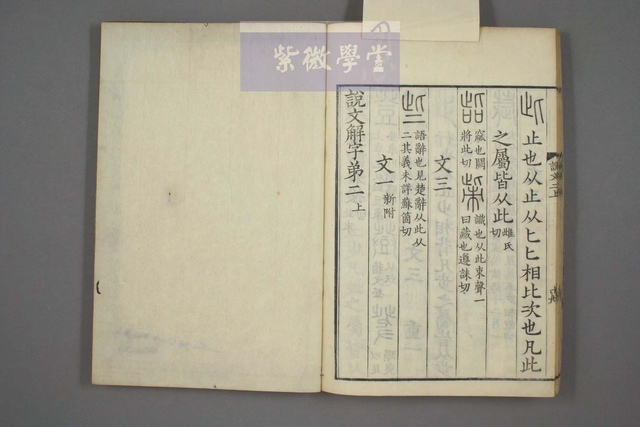 紫微學堂
止也从止从匕匕相比次也凡此
之屬皆从此雌氏切
呰窳也闕將此切 㭰識也从此朿聲一曰藏也遵誄切
文三
些語辭也見楚辭从此从二其義未詳蘇箇切
文一新附
說文解字弟二上